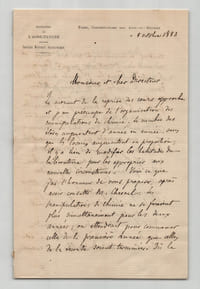 Paris, Conservatoire des Arts-et-Métiers
MINISTÈRE
DE
L'AGRICULTURE
Institut National Agronomique
5 octobre 1883
Monsieur et cher Directeur,
Le moment de la reprise des cours approche
et j'ai à me préoccuper de l'organisation des
manipulations de chimie, le nombre des
élèves augmentant d'année en année, sans
que les locaux augmentent en proportion,
il y a lieu de modifier les habitudes du
laboratoire pour les approprier aux
nouvelles circonstances. Voici ce que
j'ai l'honneur de vous proposer, après
avoir consulté M.
manipulations de chimie ne se feraient
plus simultanément pour les deux
années; on attendrait pour commencer
celles de la première année que celles
de la seconde soient terminées. De la